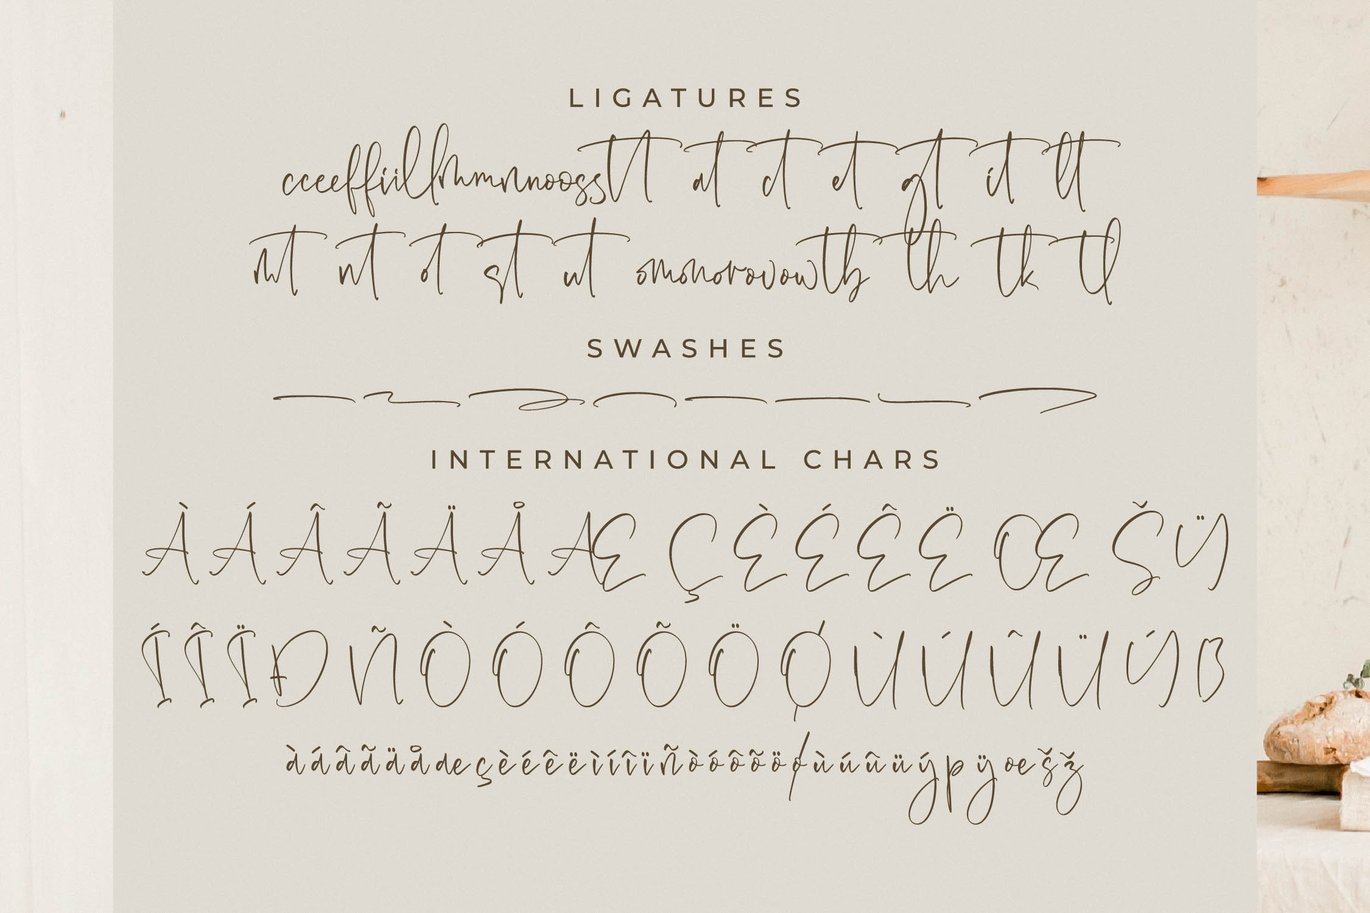 LIGATURES
cceeffiillmmnnoosstt at ct et gt it lt
mt nt ot st ut omonorovowtb th tk tl
SWASHES
INTERNATIONAL CHARS
ÀÁÂÃÄÅÆÇÈÉÊËŒŠŸ
ÍÎÏÐÑÒÓÔÕÖØÙÚÛÜÝß
àáâãäåæçèéêëìíîïñòóôõöøùúûüýþÿœšž